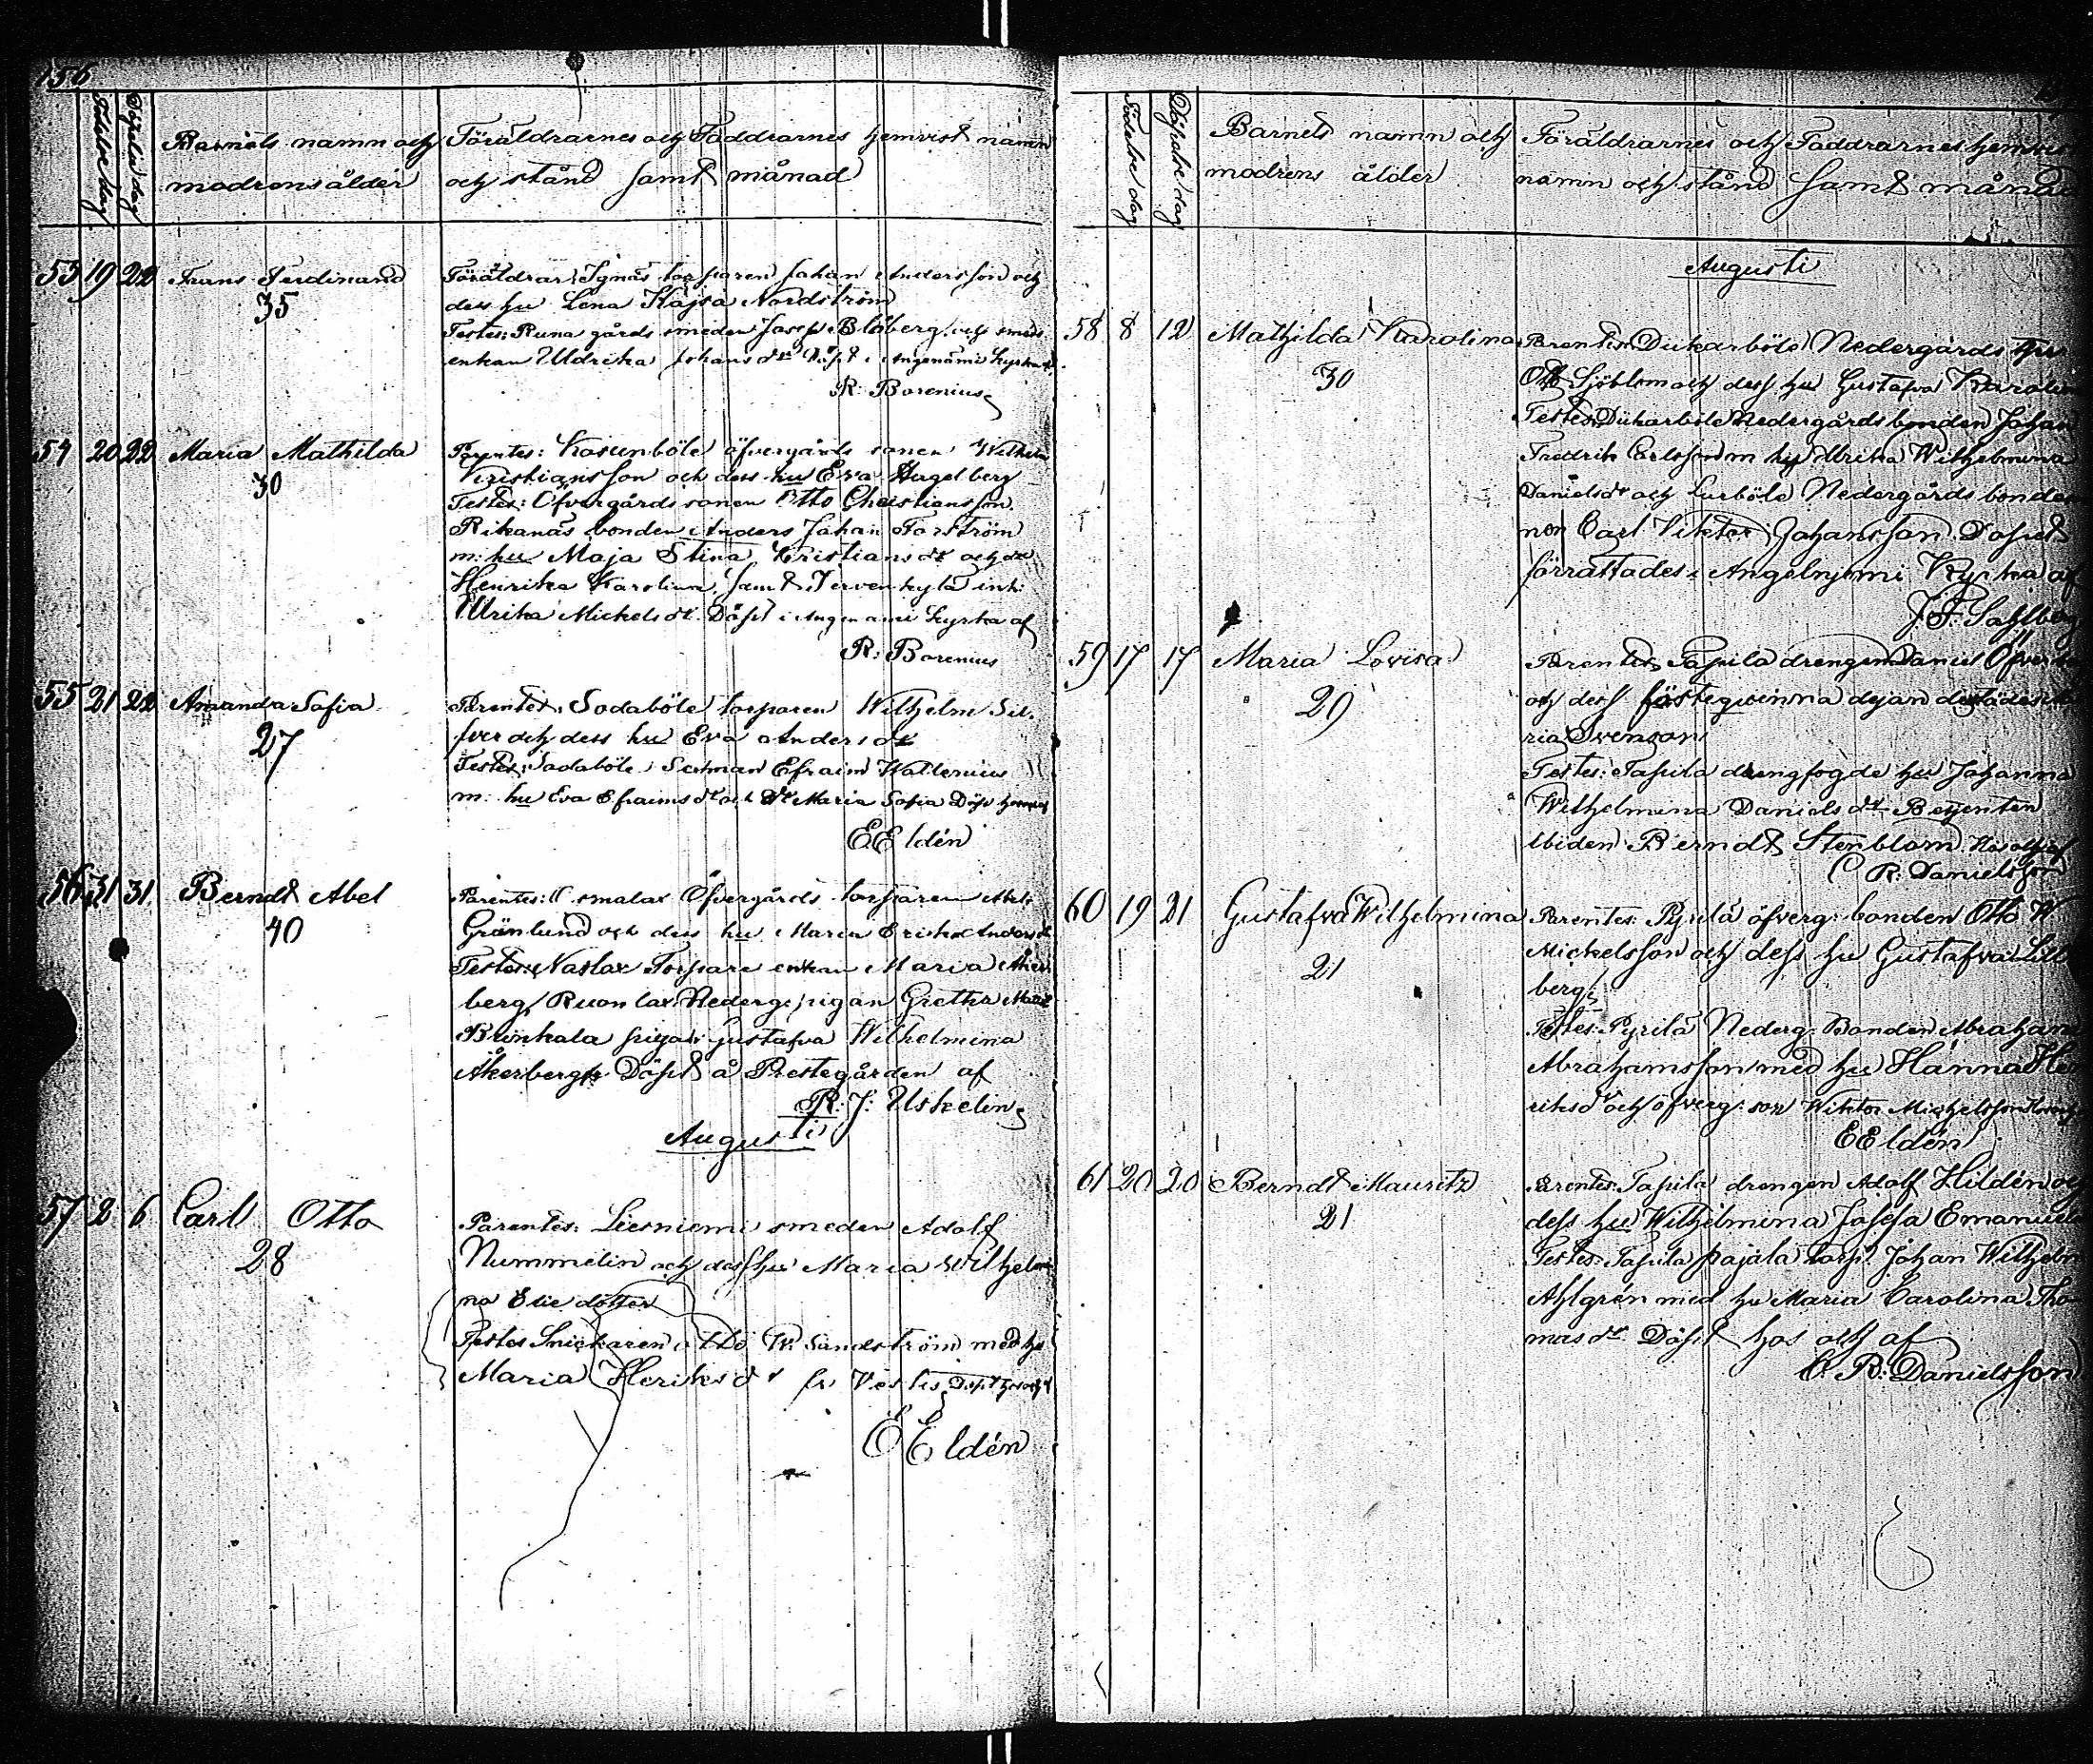 156
Födelse dag
Döpelse dag
Barnets namn och
modrens ålder
Föräldrarnes och Faddrarnes hemvist namn
och stånd samt månad
53 19 22 Frans Ferdinand
35
Föräldrar: torparen Johan Andersson och
dess hu Lena Kajsa Nordström
Testes: Runa gårds smeden Josep Blåberg och smeds
enkan Uldrika Johans dr Döpt i kyrka af
R: Borenius
54 20 22 Maria Mathilda
30
Parentes: Kosunböle öfvergårds sonen Wilhelm
Kristiansson och dess hu Eva Hagelberg
Testes: Öfvergårds sonen Otto Christiansson
Rikanäs bonden Anders Johan Forström
m: hu Maja Stina Kristians dr och dr
Henrika Karolina samt Jervenkylä inh:
Ulrika Mickels dr Döpt i kyrka af
R: Borenius
55 21 22 Amanda Sofia
27
Parentes: Sodaböle torparen Wilhelm Sil-
fver och dess hu Eva Anders dr
Testes: Sadaböle Efraim Wallenius
m: hu Eva Efraims dr och dr Maria Sofia Döpt
E E ldén
56 31 31 Berndt Abel
40
Parentes: Öfvergårds torparen Abel
Grönlund och dess hu Maria Erika Anders dr
Testes: Naslax Torpare enkan Maria Åker-
berg, Ruonlax Nederg: pigan Gretha
Brinkala pigan Gustafva Wilhelmina
Åkerberg Döpt å Prestegården af
R: J: Uskelin
Augusti
57 2 6 Carl Otto
28
Parentes: Liesniemi smeden Adolf
Nummelin och dess hu Maria Wilhelmi
na Elie dotter
Testes Snickaren Otto W. Sandström med hu
Maria Heriks dr Döpt hos och af
E E ldén
Födelse dag
Döpelse dag
Barnets namn och
modrens ålder
Föräldrarnes och Faddrarnes hemvist
namn och stånd samt månad
Augusti
58 8 12 Mathilda Karolina
30
Parentes Dükarböle Nedergårds
Otto Sjöblom och dess hu Gustafva Karolin
Testes Dükarböle Nedergårds bonden Johan
Fredrik Carlsson m hu Ulrika Wilhelmina
Daniels dr och Lurböle Nedergårds bonde
son Carl Viktor Johansson Dopet
förrättades i Angelnjemi Kyrka af
J. F. Sahlberg
59 17 17 Maria Lovisa
29
Parentes Tapila drengen Daniel Öfver
och dess fästeqvinna dejan derstädes
ria Svenson
Testes: Tapila drengfogde hu Johanna
Wilhelmina Daniels dr Betjenten
ibiden Berndt Stenblom Hos och af
C R: Danielsson
60 19 21 Gustafva Wilhelmina
21
Parentes: Pyrilä öfverg: bonden Otto W
Mickelsson och dess hu Gustafva Lill
berg
Testes: Pyrilä Nederg: Bonden Abraham
Abrahamsson med hu Hanna Hen
riksdr och öfverg: son Wiktor Michelsson
E E ldén
61 20 20 Berndt Mauritz
21
Parentes: Tapila drengen Adolf Hildén och
dess hu Wilhelmina Josefa Emanuels
Testes: Tapila pajala torp: Johan Wilhelm
Ahlgrén med hu Maria Carolina Tho
mas dr. Döpt hos och af
C. R: Danielsson